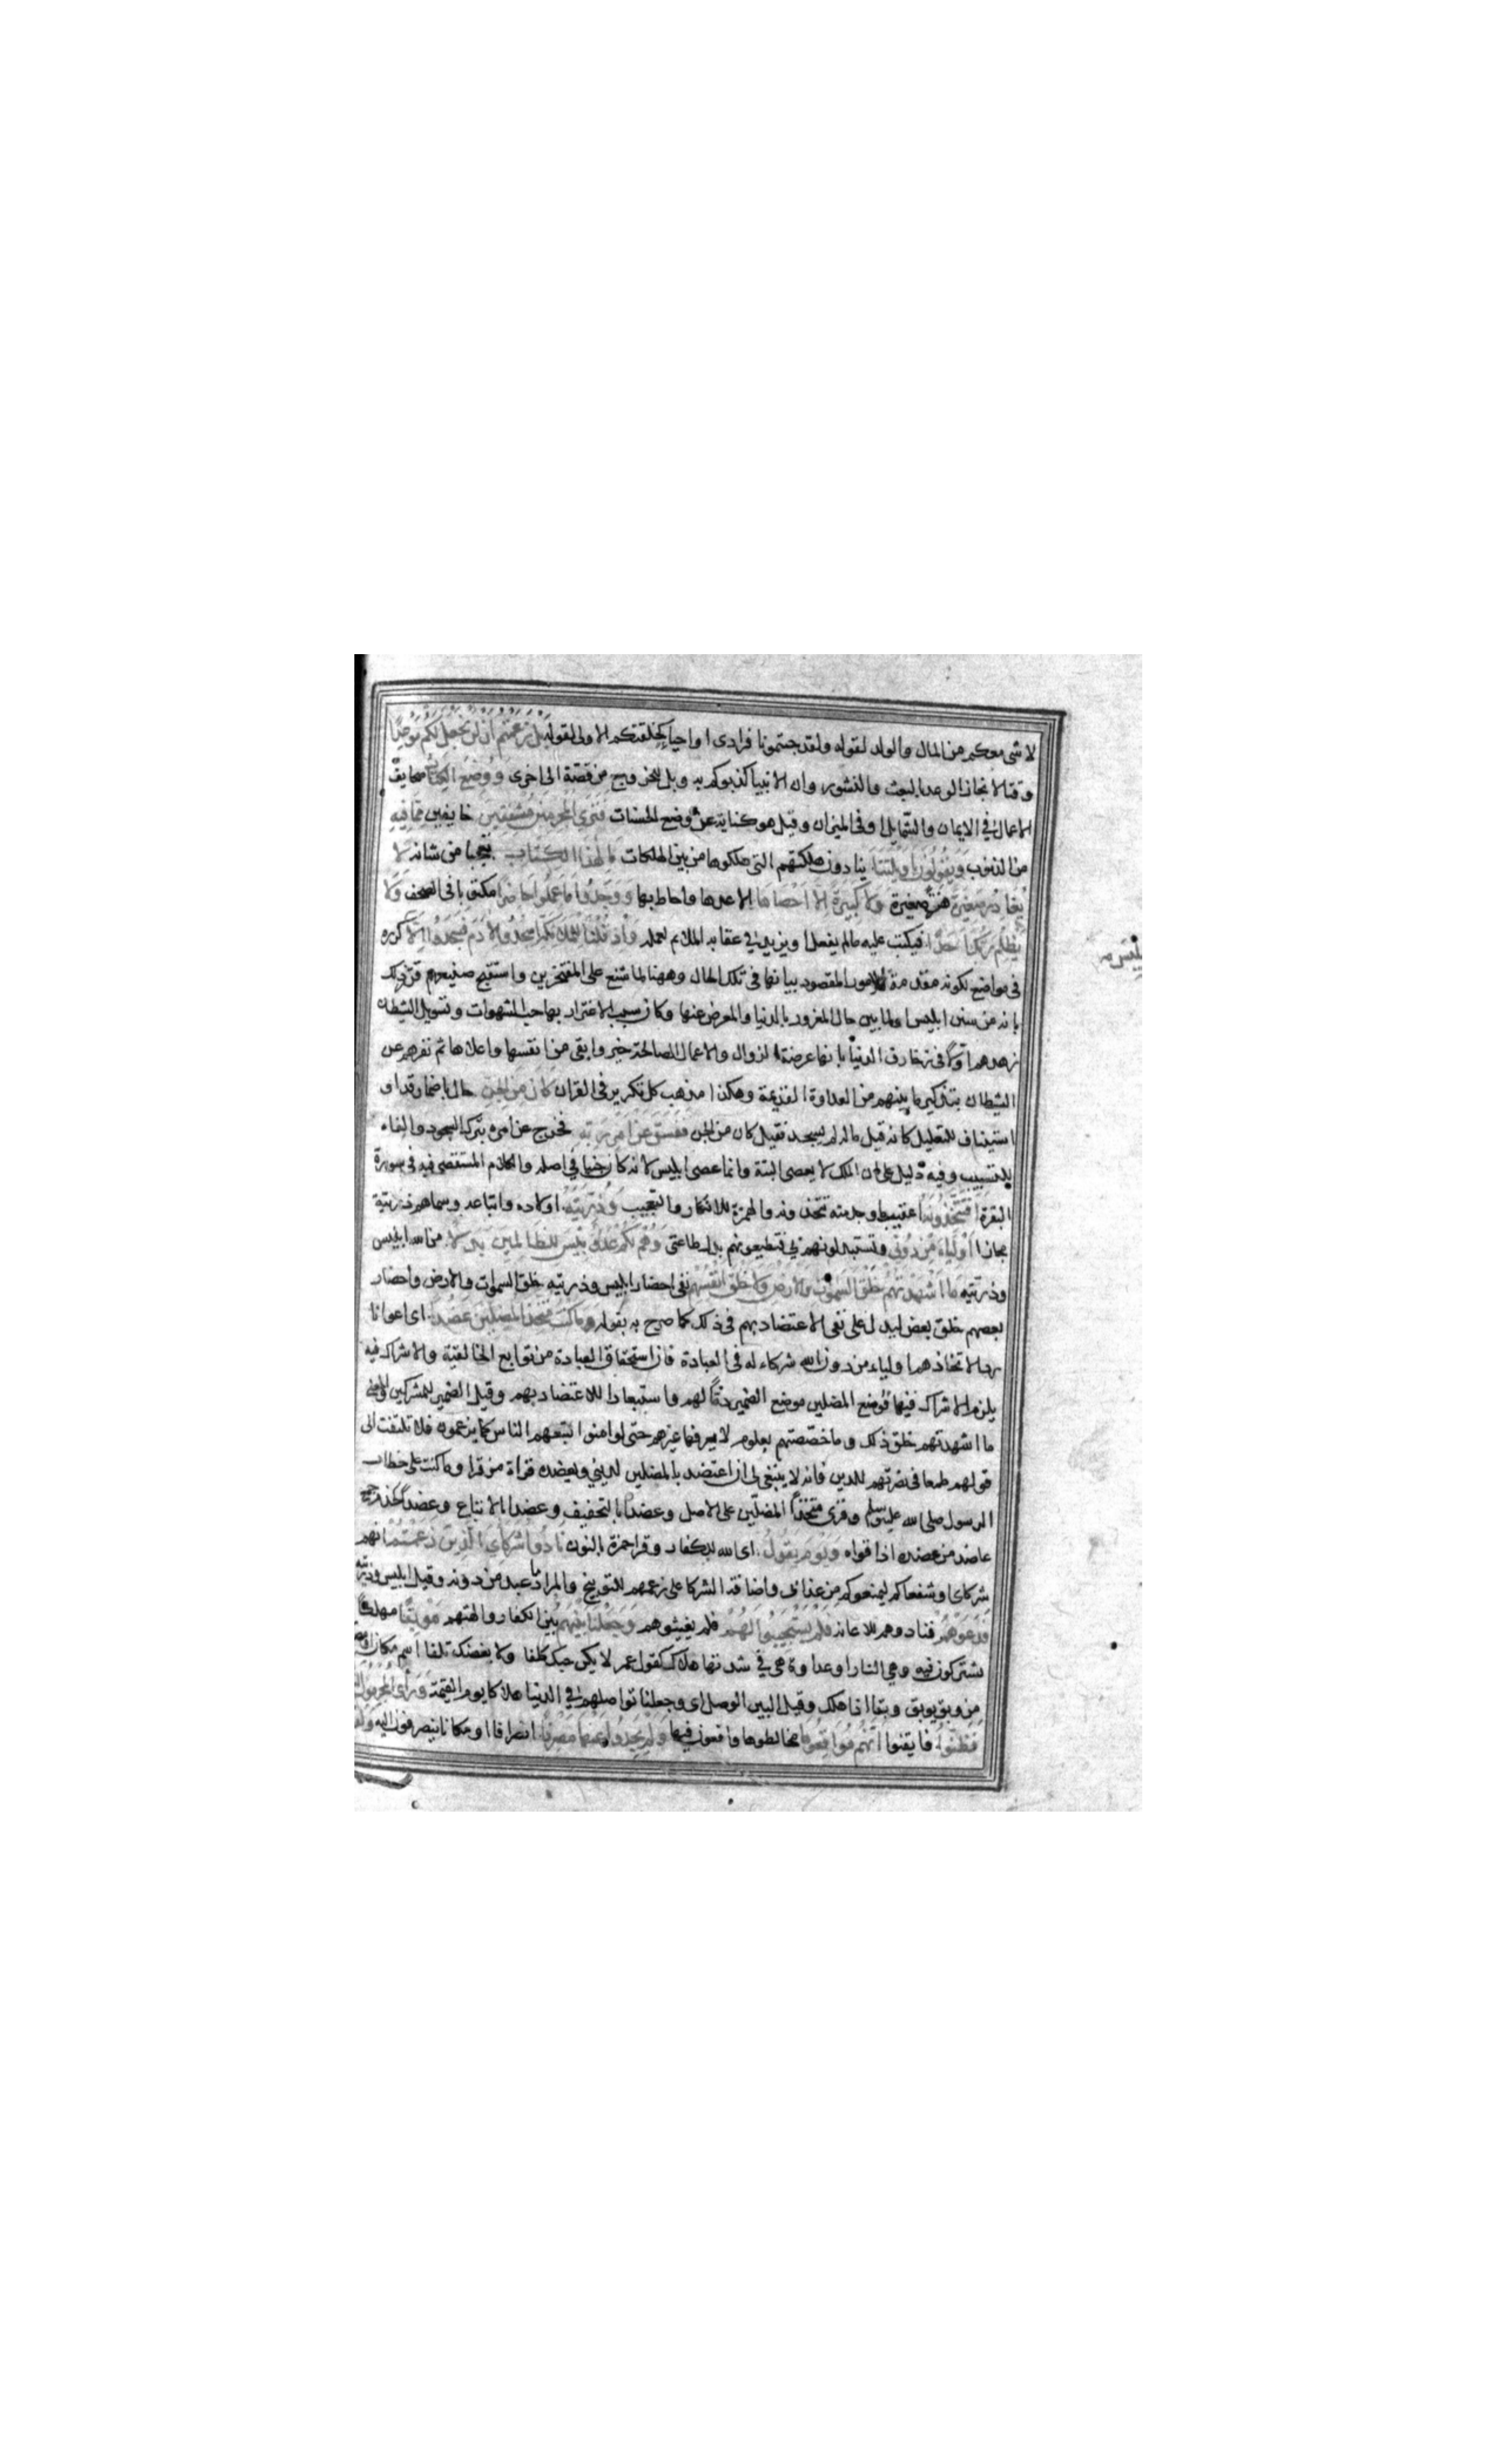 لا شى معكم من المال والولد لقوله ولقد جئتمونا فرادى او احياء كخلقتكم الاولى لقوله بَلْ زَعَمْتُمْ اَنْ لَنْ نَجْعَلَ لَكُمْ مَوْعِدًا
وقتا لانجاز الوعد بالبعث والنشور وان الانبيا كذبوكم به وبل للخروج من قصّة الى اخرى وَوُضِعَ الكِتَابُ صحايف
الاعمال فى الايمان والشمايل او فى الميزان وقيل هو كناية عن وضع الحسنات فَتَرَى المجرمين مُشْفِقِينَ خايفين مِمّا فِيهِ
من الذنوب وَيَقُولُونَ يا وَيْلَتَنَا ينادون هلكتهم التى هلكوها من بين الهلكات مَا لِهَذَا الكِتَابِ تعجبا من شانه لا
يُغَادِرُ صَغِيرَةً هنة صغيرة وَلا كَبِيرَةً اِلّا اَحْصَاهَا الا عدها واحاط بها وَوَجَدُوا مَا عَمِلُوا حَاضِرًا مكتوبا فى الصحف وَلا
يَظْلِمُ رَبُّكَ اَحَدًا فيكتب عليه مالم يفعل او يزيد فى عقابه الملائم لعمله وَاِذْ قُلْنَا لِلْمَلائِكَةِ اسْجُدُوا لِآدَمَ فَسَجَدُوا اِلّا كرره
فى مواضع لكونه مقدمة للامور المقصود بيانها فى تلك الحال وههنا لما شنع على المفتخرين واستقبح صنيعهم قرر ذلك
بانه من سنن ابليس او لما بين حال المغرور بالدنيا والمعرض عنها وكان سبب الاغترار بها حب الشهوات وتسويل الشيطان
زهدهم اوّلا فى زخارف الدنيا بانها عرضة الزوال والاعمال الصالحة خير وابقى من انفسها واعلاها ثم نفرهم عن
الشيطان بتذكير ما بينهم من العداوة القديمة وهكذا مذهب كل تكرير فى القران كَانَ مِنَ الجِنّ حال باضمار قد او
استيناف للتعليل كانه قيل ما له لم يسجد فقيل كان من الجن فَفَسَقَ عَنْ اَمْرِ رَبِّهِ فخرج عن امره بترك السجود والفاء
للتسبيب وفيه دليل على ان الملك لا يعصى البتة وانما عصى ابليس لانه كان جنيا فى اصله والكلام المستقصى فيه فى سورة
البقرة اَفَتَتَّخِذُونَهُ اعقيب ما وجد منه تتخذونه والهمزة للانكار والتعجيب وَذُرِّيَّتَهُ اولاده واتباعه وسماهم ذريته
مجازا اَوْلِيَاءَ مِنْ دُونِي وتستبدلونهم بى فتطيعونهم بدل طاعتى وَهُمْ لَكُمْ عَدُوٌّ بِئْسَ لِلظَّالِمِينَ بَدَلا من الله ابليس
وذريته مَا اَشْهَدْتُهُمْ خَلْقَ السَّمٰوَاتِ وَالاَرْضِ وَلا خَلْقَ اَنْفُسِهِمْ نفى احضار ابليس وذريته خلق السموات والارض واحضار
بعضهم خلق بعض ليدل على نفى الاعتضاد بهم فى ذلك كما صرح به بقوله وَمَا كُنْتُ مُتَّخِذَ المُضِلِّينَ عَضُدًا اى اعوانا
ردا لاتخاذهم اولياء من دون الله شركاء له فى العبادة فان استحقاق العبادة من توابع الخالقية والاشراك فيه
يلزم الاشراك فيها فوضع المضلين موضع الضمير ذمّا لهم واستبعادا للاعتضاد بهم وقيل الضمير للمشركين والمعنى
ما اشهدتهم خلق ذلك وما خصصتهم بعلوم لا يعرفها غيرهم حتى لو امنوا اتبعهم الناس كما يزعمون فلا تلتفت الى
قولهم طمعا فى نصرتهم للدين فانه لا ينبغى لى ان اعتضد بالمضلين لدينى ويعضده قراة من قرا وما كنت على خطاب
الرسول صلى الله عليه وسلم وقرى متخذًا المضلّين على الاصل وعضدًا بالتخفيف وعضدا بالاتباع وعضدًا كخدم جمع
عاضد من عضده اذا قواه وَيَوْمَ يَقُولُ اى الله للكفار وقرا حمزة بالنون نَادُوا شُرَكَائِيَ الَّذِينَ زَعَمْتُمْ انهم
شركاى او شفعاكم ليمنعوكم من عذابى واضافة الشركا على زعمهم للتوبيخ والمراد ما عبد من دونه وقيل ابليس وذريته
فَدَعَوْهُمْ فنادوهم للاغاثة فَلَمْ يَسْتَجِيبُوا لَهُمْ فلم يغيثوهم وَجَعَلْنَا بَيْنَهُمْ بين الكفار والهتهم مَوْبِقًا مهلكا
يشتركون فيه وهى النار او عداوة هى فى شدتها هلاك كقول عمر لا يكن حبك كلفا ولا بغضك تلفا اسم مكان او مصدر
من وبق يوبق وبقا اذا هلك وقيل البين الوصل اى وجعلنا تواصلهم فى الدنيا هلاكا يوم القيمة وَرَأَى المُجْرِمُونَ النَّارَ
فَظَنُّوا فايقنوا اَنَّهُمْ مُوَاقِعُوهَا مخالطوها واقعون فيها وَلَمْ يَجِدُوا عَنْهَا مَصْرِفًا انصرافا او مكانا ينصرفون اليه ولقد